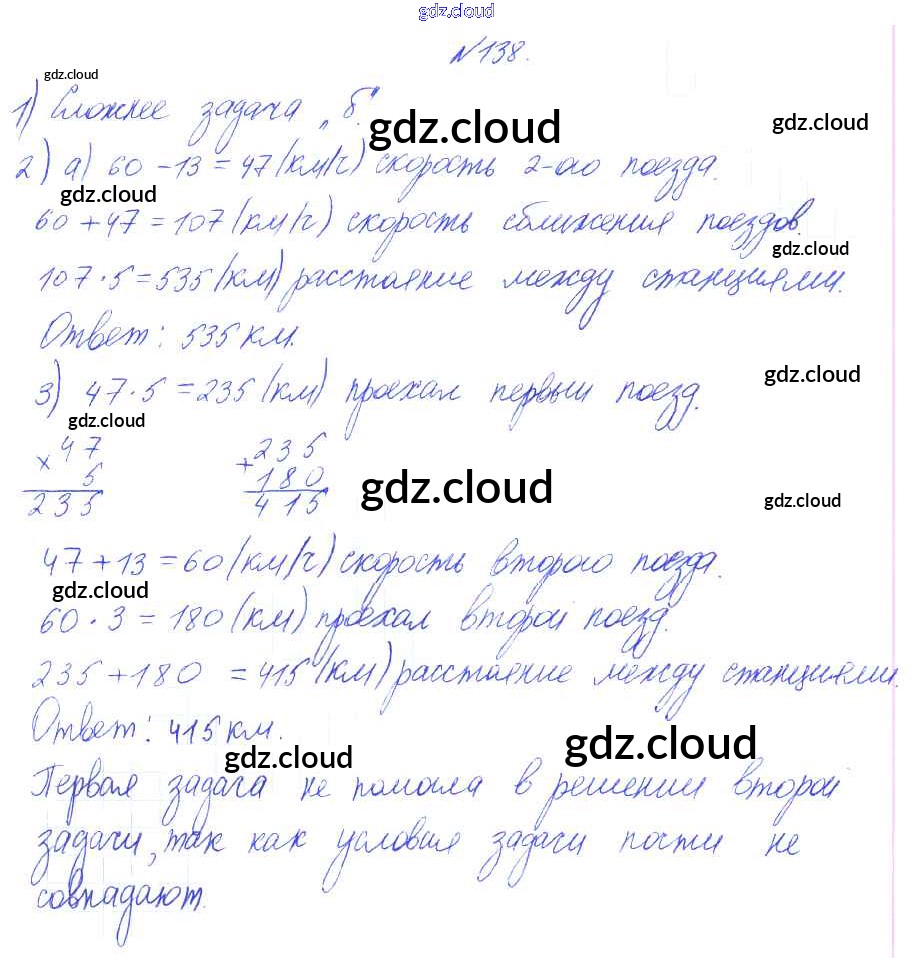 gdz.cloud
№138.
gdz.cloud
1) Сложнее задача „б".
gdz.cloud
gdz.cloud
2) а) 60 - 13 = 47 (км/ч) скорость 2-ого поезда.
gdz.cloud
60 + 47 = 107 (км/ч) скорость сближения поездов.
gdz.cloud
107 · 5 = 535 (км) расстояние между станциями.
Ответ: 535 км.
3) 47 · 5 = 235 (км) проехал первый поезд.
gdz.cloud
gdz.cloud
× 47 + 235
5 180
235 415
gdz.cloud
gdz.cloud
47 + 13 = 60 (км/ч) скорость второго поезда.
gdz.cloud
60 · 3 = 180 (км) проехал второй поезд.
235 + 180 = 415 (км) расстояние между станциями.
Ответ: 415 км.
gdz.cloud
gdz.cloud
Первая задача не помогла в решении второй
задачи, так как условия задачи почти не
совпадают.